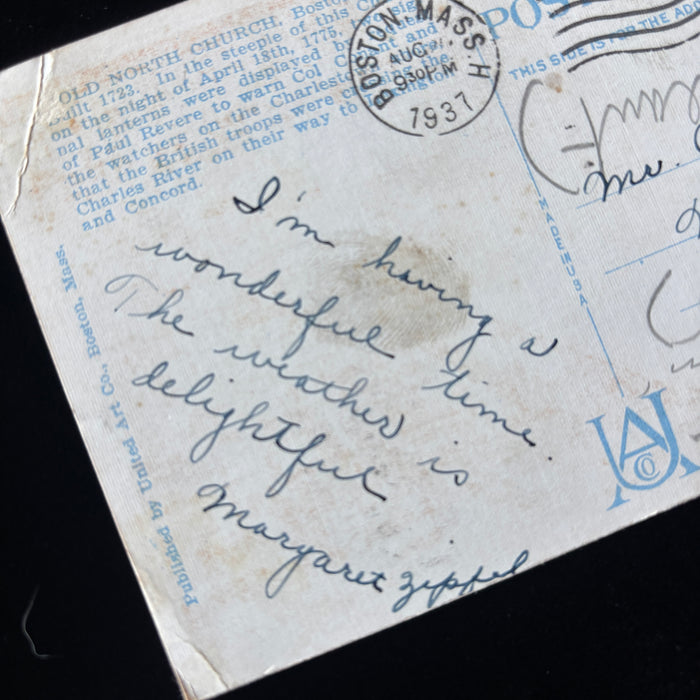 OLD NORTH CHURCH, Boston,
Built 1723. In the steeple of this
on the night of April 18th, 1775, two sig-
nal lanterns were displayed by
of Paul Revere to warn Col and
the watchers on the Charlestown
that the British troops were crossing the
Charles River on their way to Lexington
and Concord.
BOSTON, MASS.
AUG
930PM
1937
POS
THIS SIDE IS FOR THE ADD
Mr.
MADE IN USA
I'm having a
wonderful time.
The weather is
delightful
Margaret Zipfel
Published by United Art Co., Boston, Mass.
UA
CO